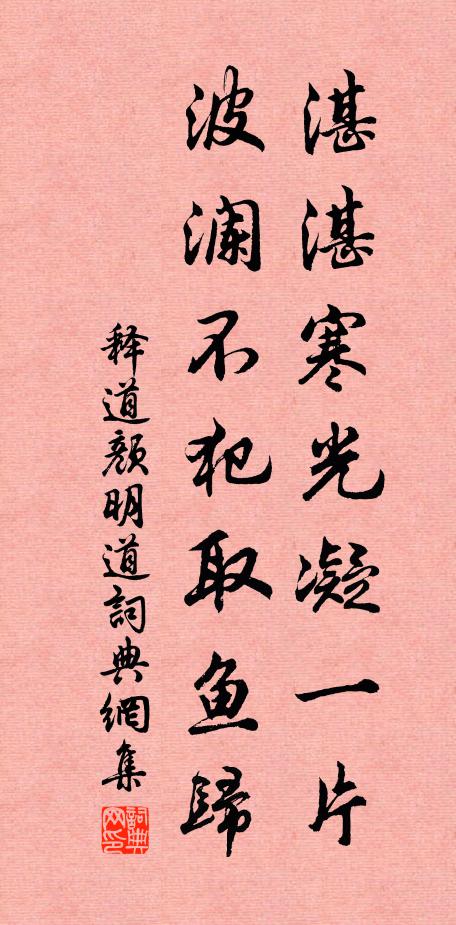 湛湛寒光凝一片
波澜不犯取鱼歸
释道颜明道詞典網集
詞典网印